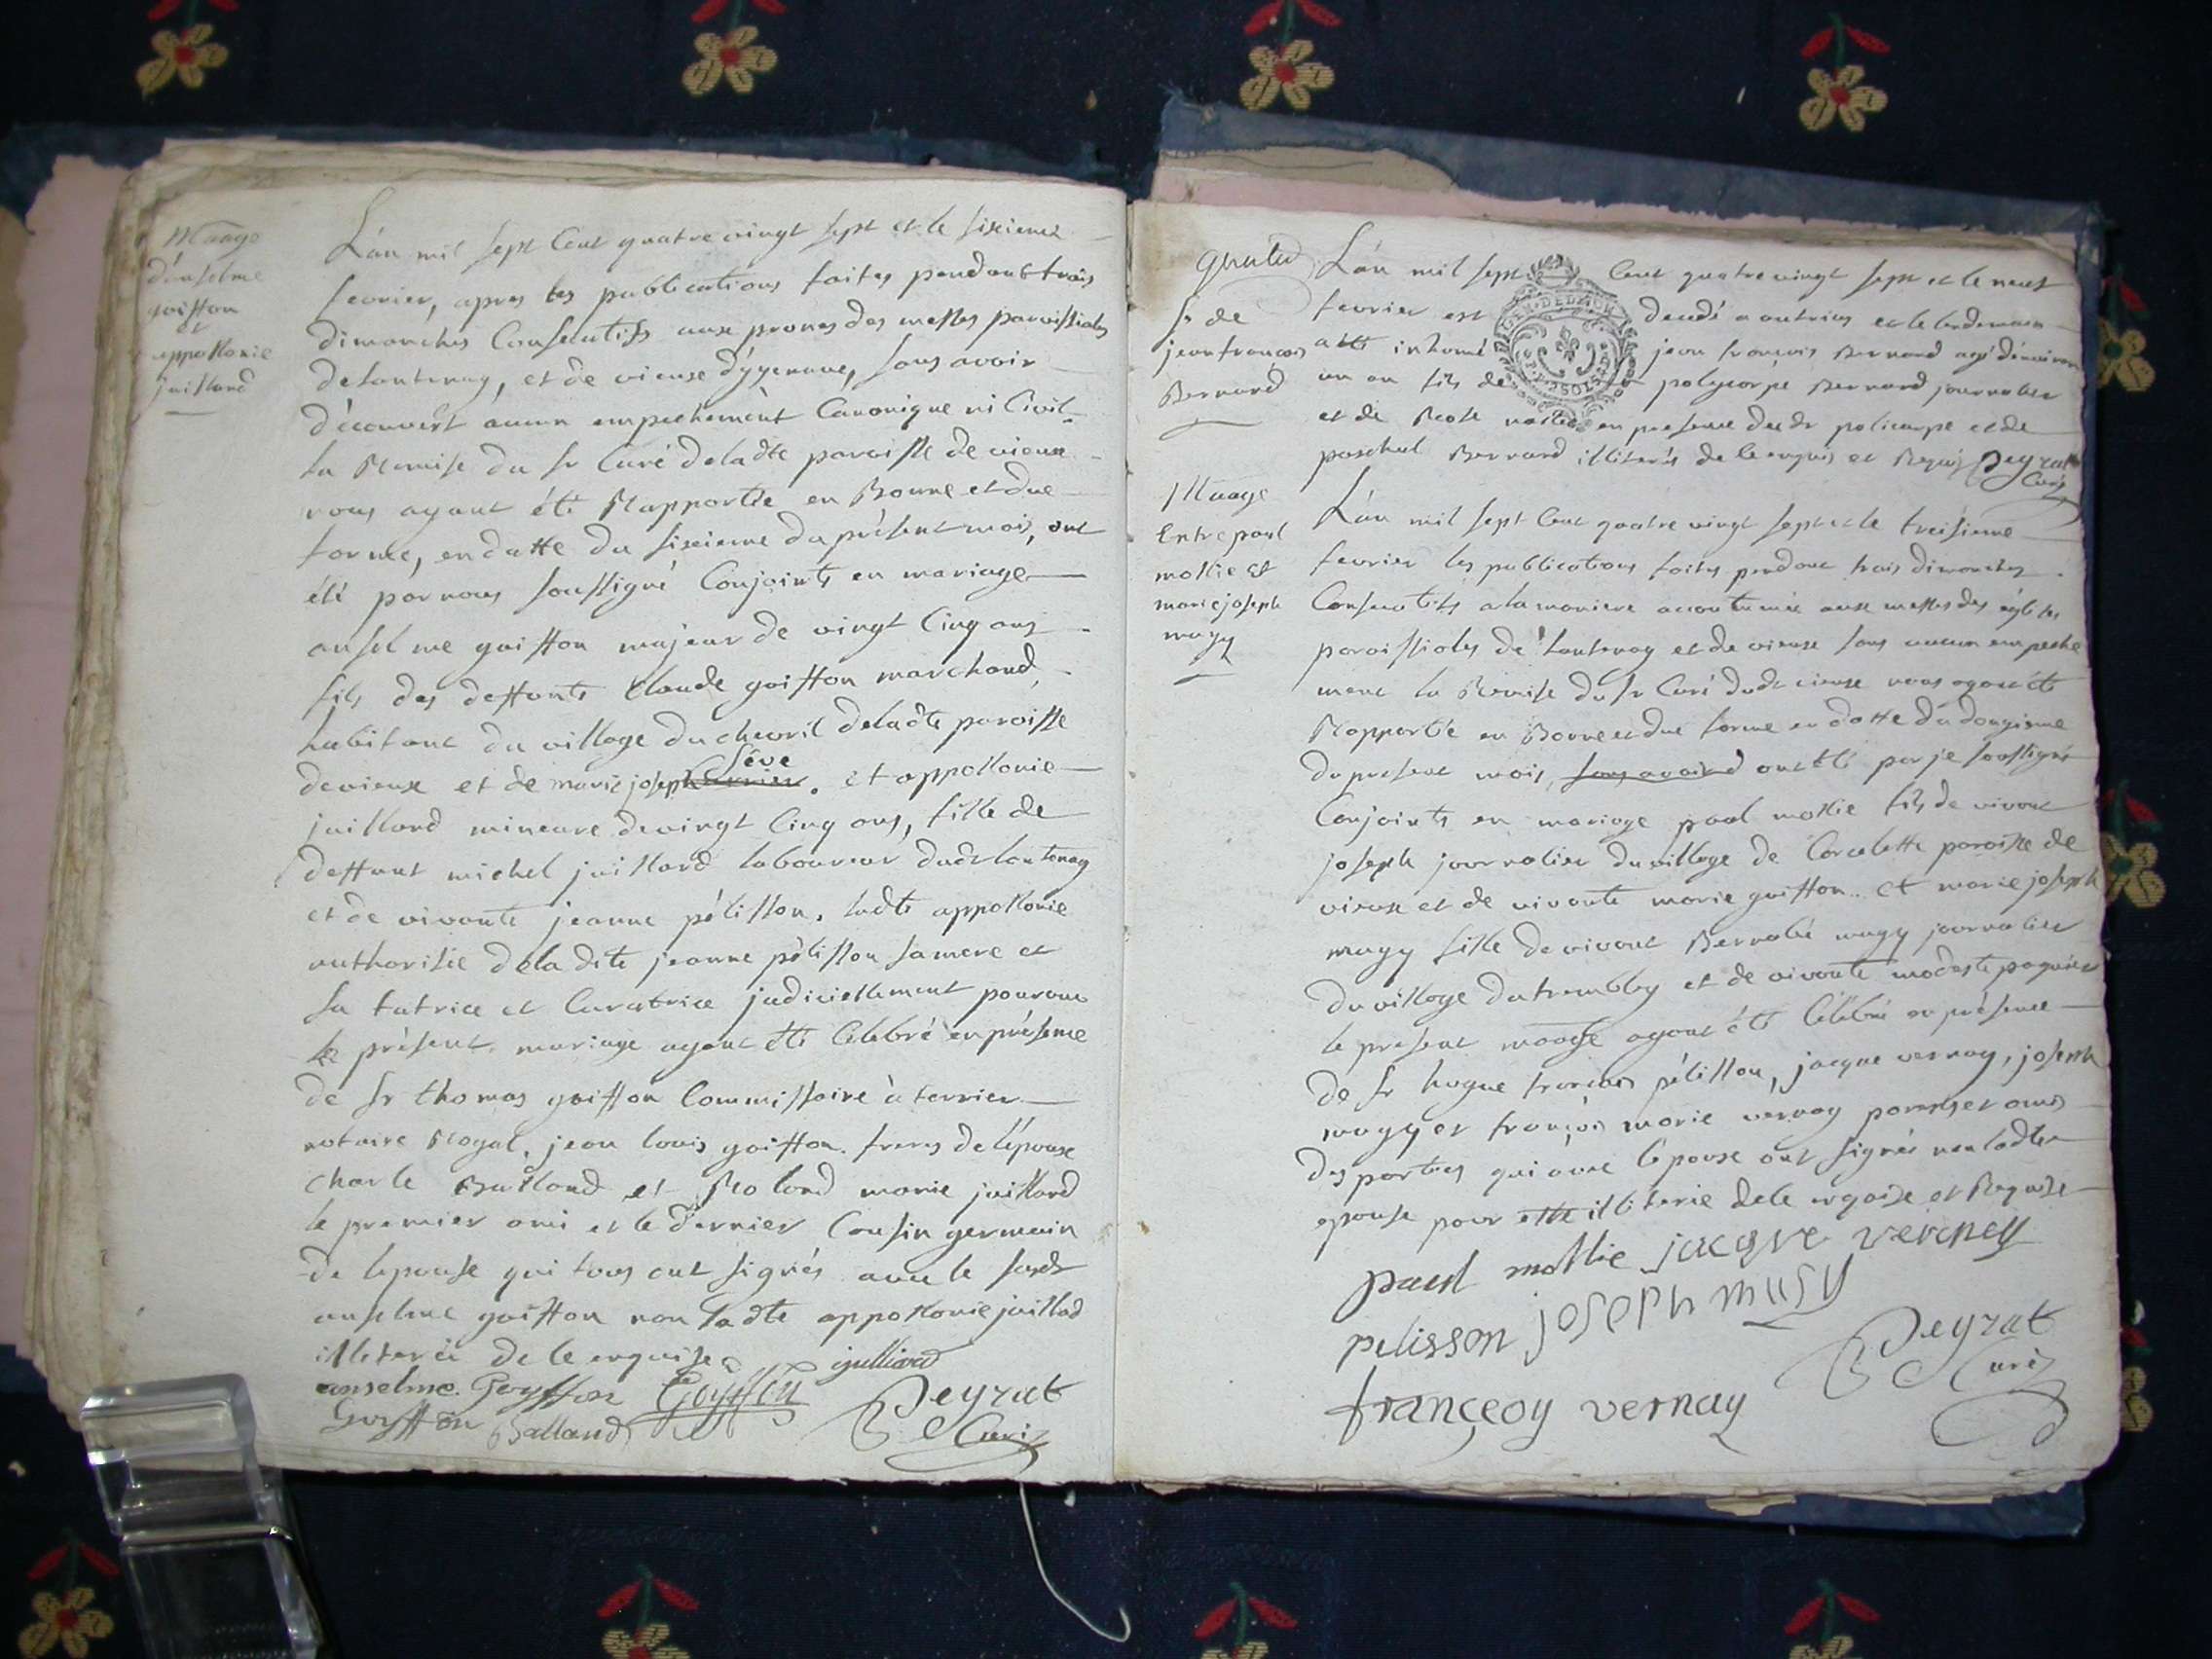 Mariage
d'anselme
goiffon
et
appollonie
juilland
L'an mil sept Cent quatre vingt sept et le sixieme
fevrier, apres les publications faites pendant trois
dimanches Consecutifs aux prones des messes paroissiales
de lantenay, et de vieux d'yzenave, sans avoir
découvert aucun empechement Canonique ni Civil
la Remise du sr Curé de ladte paroisse de vieux
nous ayant été Rapportée en Bonne et due
forme, en datte du sixieme du présent mois, ont
été par nous soussigné Conjoints en mariage
anselme goiffon majeur de vingt Cinq ans
fils des deffunts Claude goiffon marchand,
habitant du village du chevril de ladte paroisse
de vieux et de marie joseph Séve. et appollonie
juilland mineure de vingt Cinq ans, fille de
deffunt michel juilland laboureur dudt lantenay
et de vivante jeanne pélisson, ladte appollonie
authorisée de la dite jeanne pélisson sa mere et
sa tutrice et Curatrice judiciellement pourvue
le présent mariage ayant été Celebré en présence
de sr thomas goiffon Commissaire à terrier
notaire Royal, jean louis goiffon. freres de l'epoux
charle Balland et Roland marie juilland
le premier ami et le dernier Cousin germain
de lepouse qui tous ont signés avec le susdt
anselme goiffon non ladte appollonie juilland
illeterée de le enquise
anselme. Goyffon Goyffon juilliard
Goyffon Balland Peyzat
Curé
sr de
jean francois
Bernard
L'an mil sept Cent quatre vingt sept et le neuf
fevrier est decedé a outriaz et le lendemain
a été inhumé jean françois Bernard agé d'environ
un an fils de polycarpe Bernard journalier
et de Rose en presence dudt policarpe et de
paschal Bernard illiterés de le enquis et Requis Peyzat
Curé
Mariage
Entre paul
mollie et
marie joseph
mugy
L'an mil sept Cent quatre vingt sept et le treisieme
fevrier les publications faites pendant trois dimanches
Consecutifs a la maniere accoutumée aux messes des églises
paroissiales de lantenay et de vieux sans aucun empeche
ment la Remise du sr Curé dudt vieux nous ayant été
Rapportée en Bonne et due forme en datte du douzieme
du present mois, sans avoir d ont été par je soussigné
Conjoints en mariage paul mollie fils de vivant
joseph journalier du village de Corcelette paroisse de
vieux et de vivante marie goiffon.. et marie joseph
mugy fille de vivant Bernabé mugy journalier
du village du tremblay et de vivante modeste
le présent mariage ayant été Célébré en présence
de sr hugue francois pélisson, jacque vernay, joseph
mugy et françois marie vernay parents et amis
des parties qui avec l'epoux ont signés non ladte
epouse pour etre illiterée de le enquise et Requise
paul mollie jacque verney
pelisson joseph musy
Peyzat
Curé
françeoy vernay